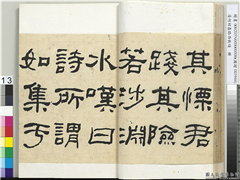 其慄君
踐其險
若涉淵
冰嘆曰
詩所謂
如集于
13